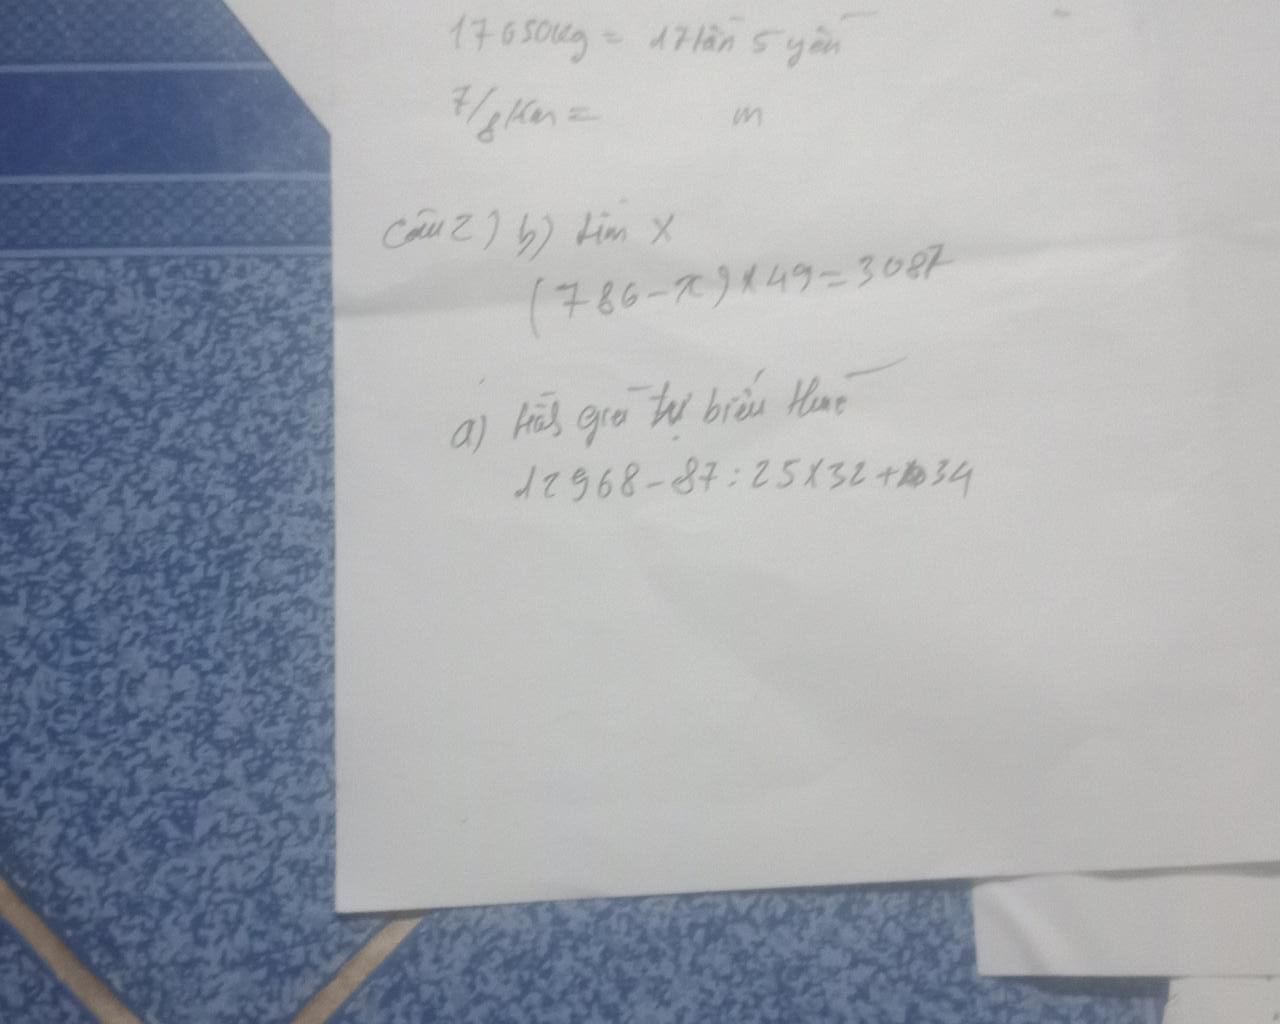 17650kg = 17tấn 5 yến
7/8 km = m
Câu 2) b) tìm x
(786 - x) x 49 = 3087
a) giá trị biểu thức
12968 - 87 : 25 x 32 + 34